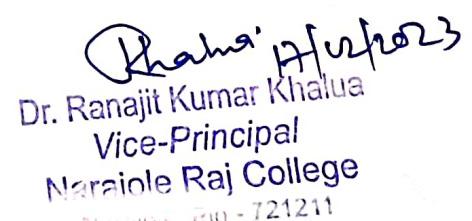 Khalua 17/02/2023
Dr. Ranajit Kumar Khalua
Vice-Principal
Narajole Raj College
Pin - 721211